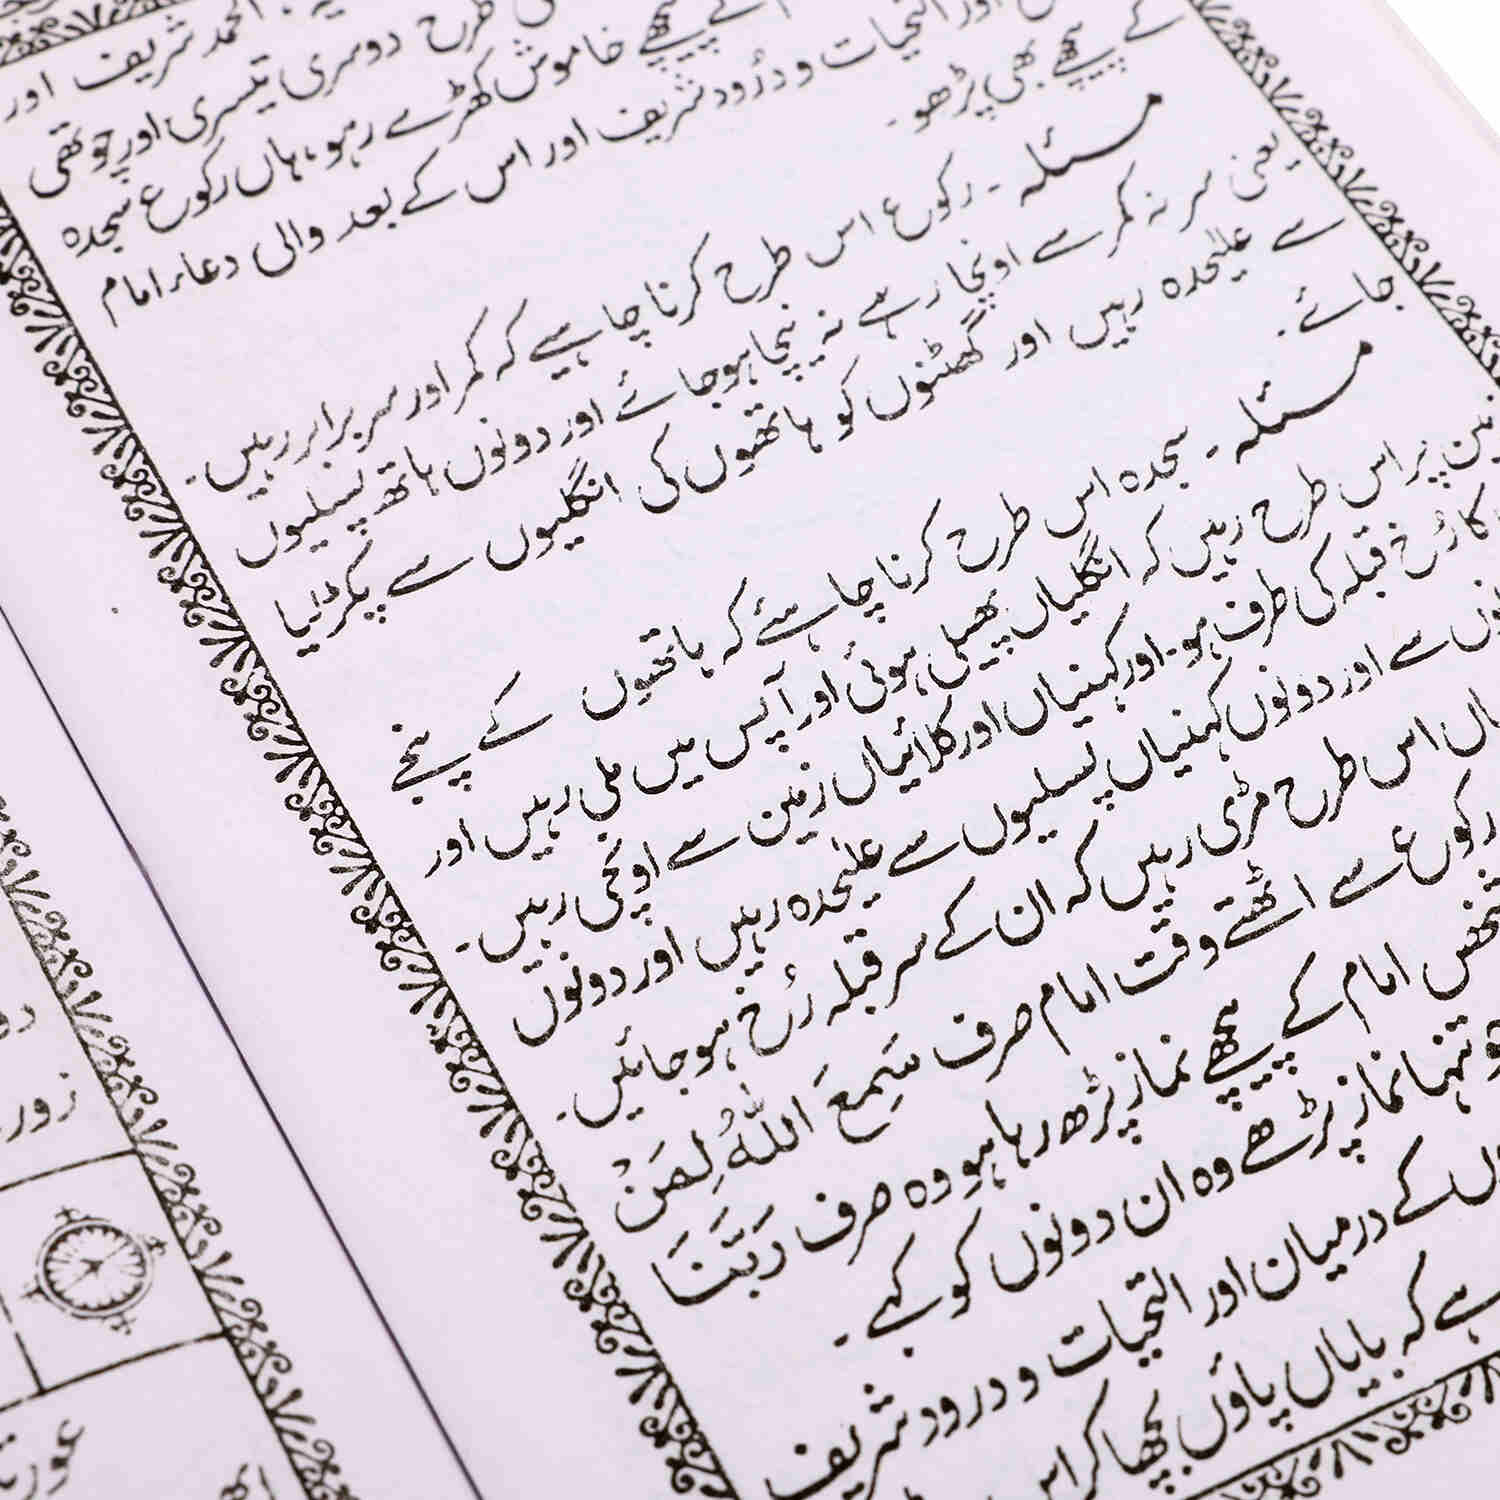 یہ الحمد شریف اور
طرح دوسری تیسری اور چوتھی
کے پیچھے خاموش کھڑے رہو، ہاں رکوع سجدہ
اور التحیات و درُود شریف اور اس کے بعد والی دعاء امام
کے پیچھے بھی پڑھو۔
مسئلہ ۔ رکوع اس طرح کرنا چاہیے کہ کمر اور سر برابر رہیں۔
یعنی سر نہ کمر سے اونچا رہے نہ نیچا ہو جائے اور دونوں ہاتھ پسلیوں
سے علیٰحدہ رہیں اور گھٹنوں کو ہاتھوں کی انگلیوں سے پکڑ لیا
جائے۔
مسئلہ ۔ سجدہ اس طرح کرنا چاہئے کہ ہاتھوں کے پنجے
پر اس طرح رہیں کہ انگلیاں پھیلی ہوئی اور آپس میں ملی رہیں اور
کا رُخ قبلہ کی طرف ہو۔ اور کہنیاں اور کلائیاں زمین سے اونچی رہیں۔
سے اور دونوں کہنیاں پسلیوں سے علیٰحدہ رہیں اور دونوں
اس طرح مڑی رہیں کہ ان کے سر قبلہ رُخ ہو جائیں۔
رکوع سے اٹھتے وقت امام صرف سَمِعَ اللّٰهُ لِمَنْ
امام کے پیچھے نماز پڑھ رہا ہو وہ صرف رَبَّنَا
تنہا نماز پڑھے وہ ان دونوں کو کہے۔
کے درمیان اور التحیات و درود شریف
ہے کہ بایاں پاؤں بچھا کر اس
زور